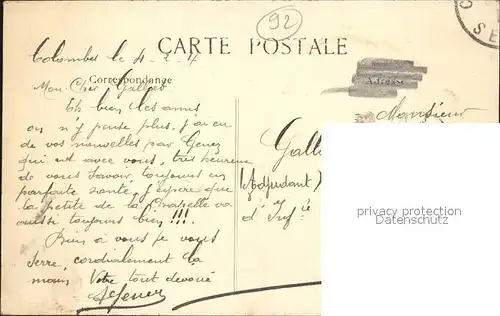 92
CARTE POSTALE
Correspondance
Adresse
Colombes le 4-2-
Mon Cher
Eh bien les amis
on n'y pense plus, j'ai eu
de vos nouvelles par Genez
qui est avec vous, très heureux
de vous savoir toujours en
parfaite santé, j'espère que
la petite de la Chapelle va
aussi toujours bien !!!
Rien à vous je vous
serre cordialement la
main Votre tout dévoué
Monsieur
Gall
(Adjudant)
d'Infie
privacy protection
Datenschutz